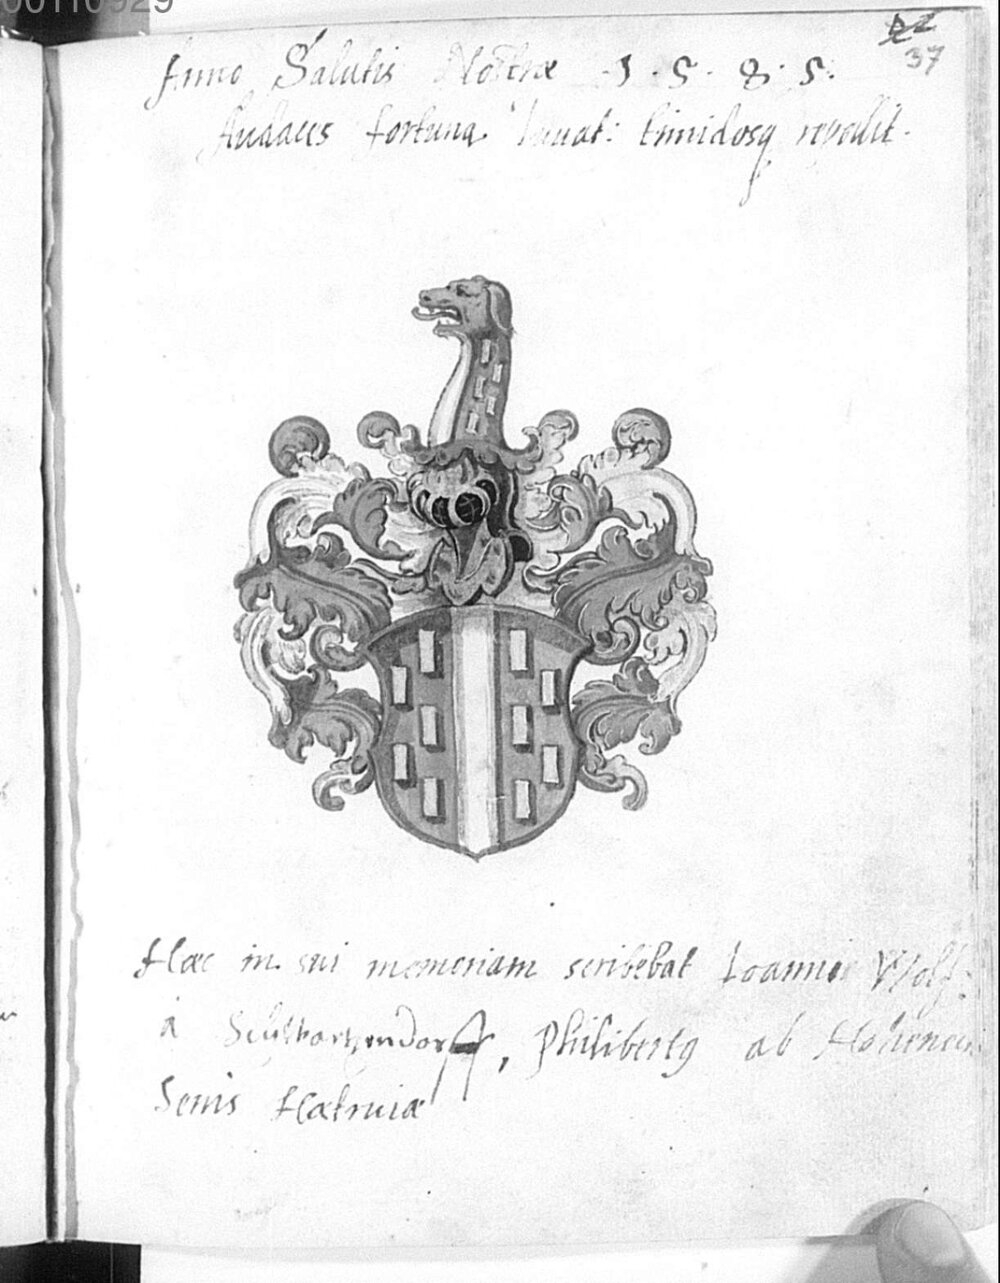 00110929
22
37
Anno Salutis Nostræ 1·5·8·5·
Audaces fortuna iuuat: timidosq repellit.
Hæc in sui memoriam scribebat Ioanni Wolf:
à Schwartzendorff, Philibertq ab Hohenec
Senis Hætruiæ